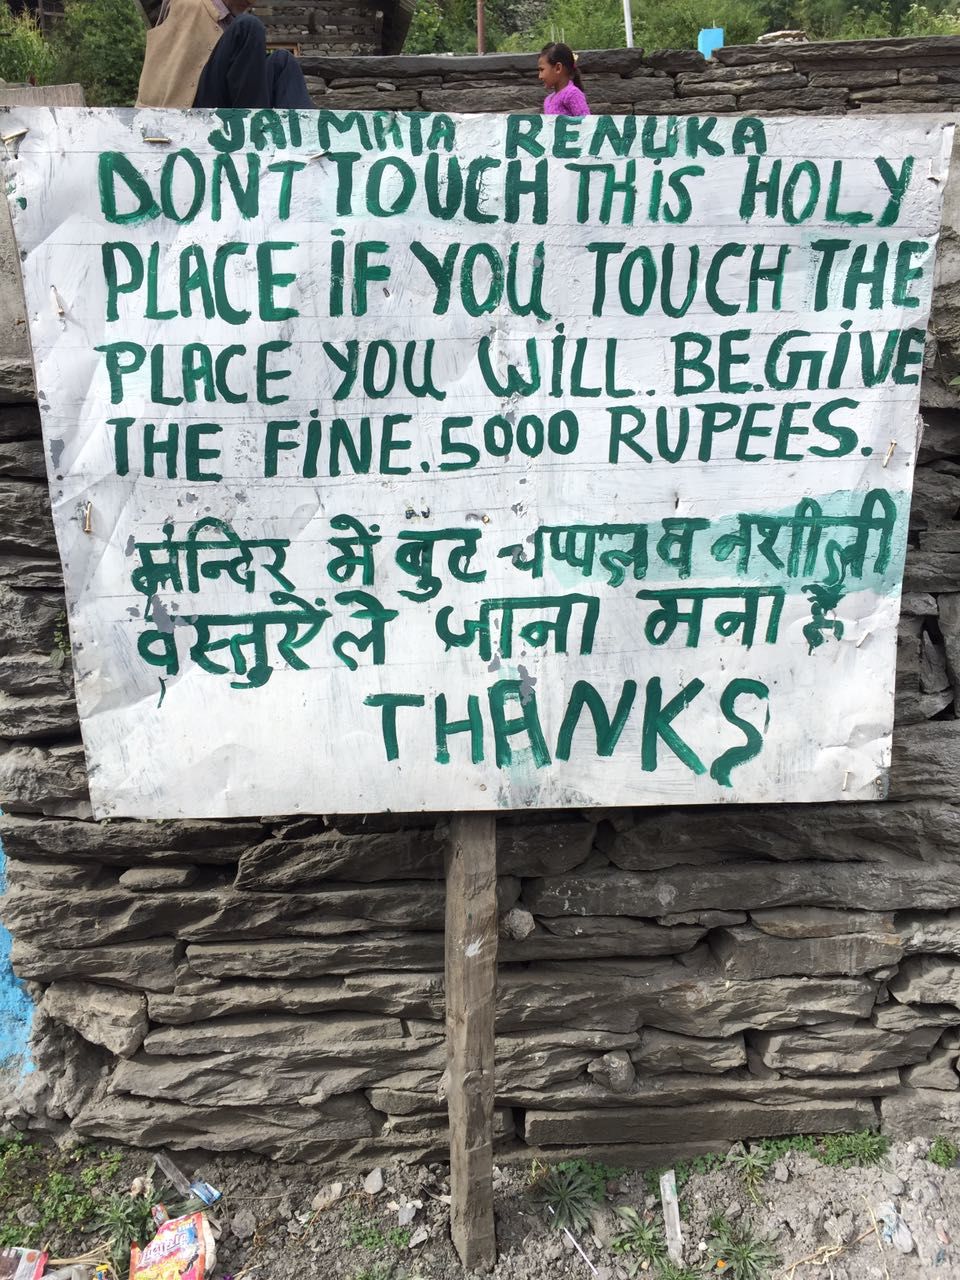 JAI MATA RENUKA
DONT TOUCH THIS HOLY
PLACE IF YOU TOUCH THE
PLACE YOU WILL. BE.GIVE
THE FINE.5000 RUPEES.
मन्दिर में बुट चप्पल व नशीली
वस्तुऐं ले जाना मना है
THANKS